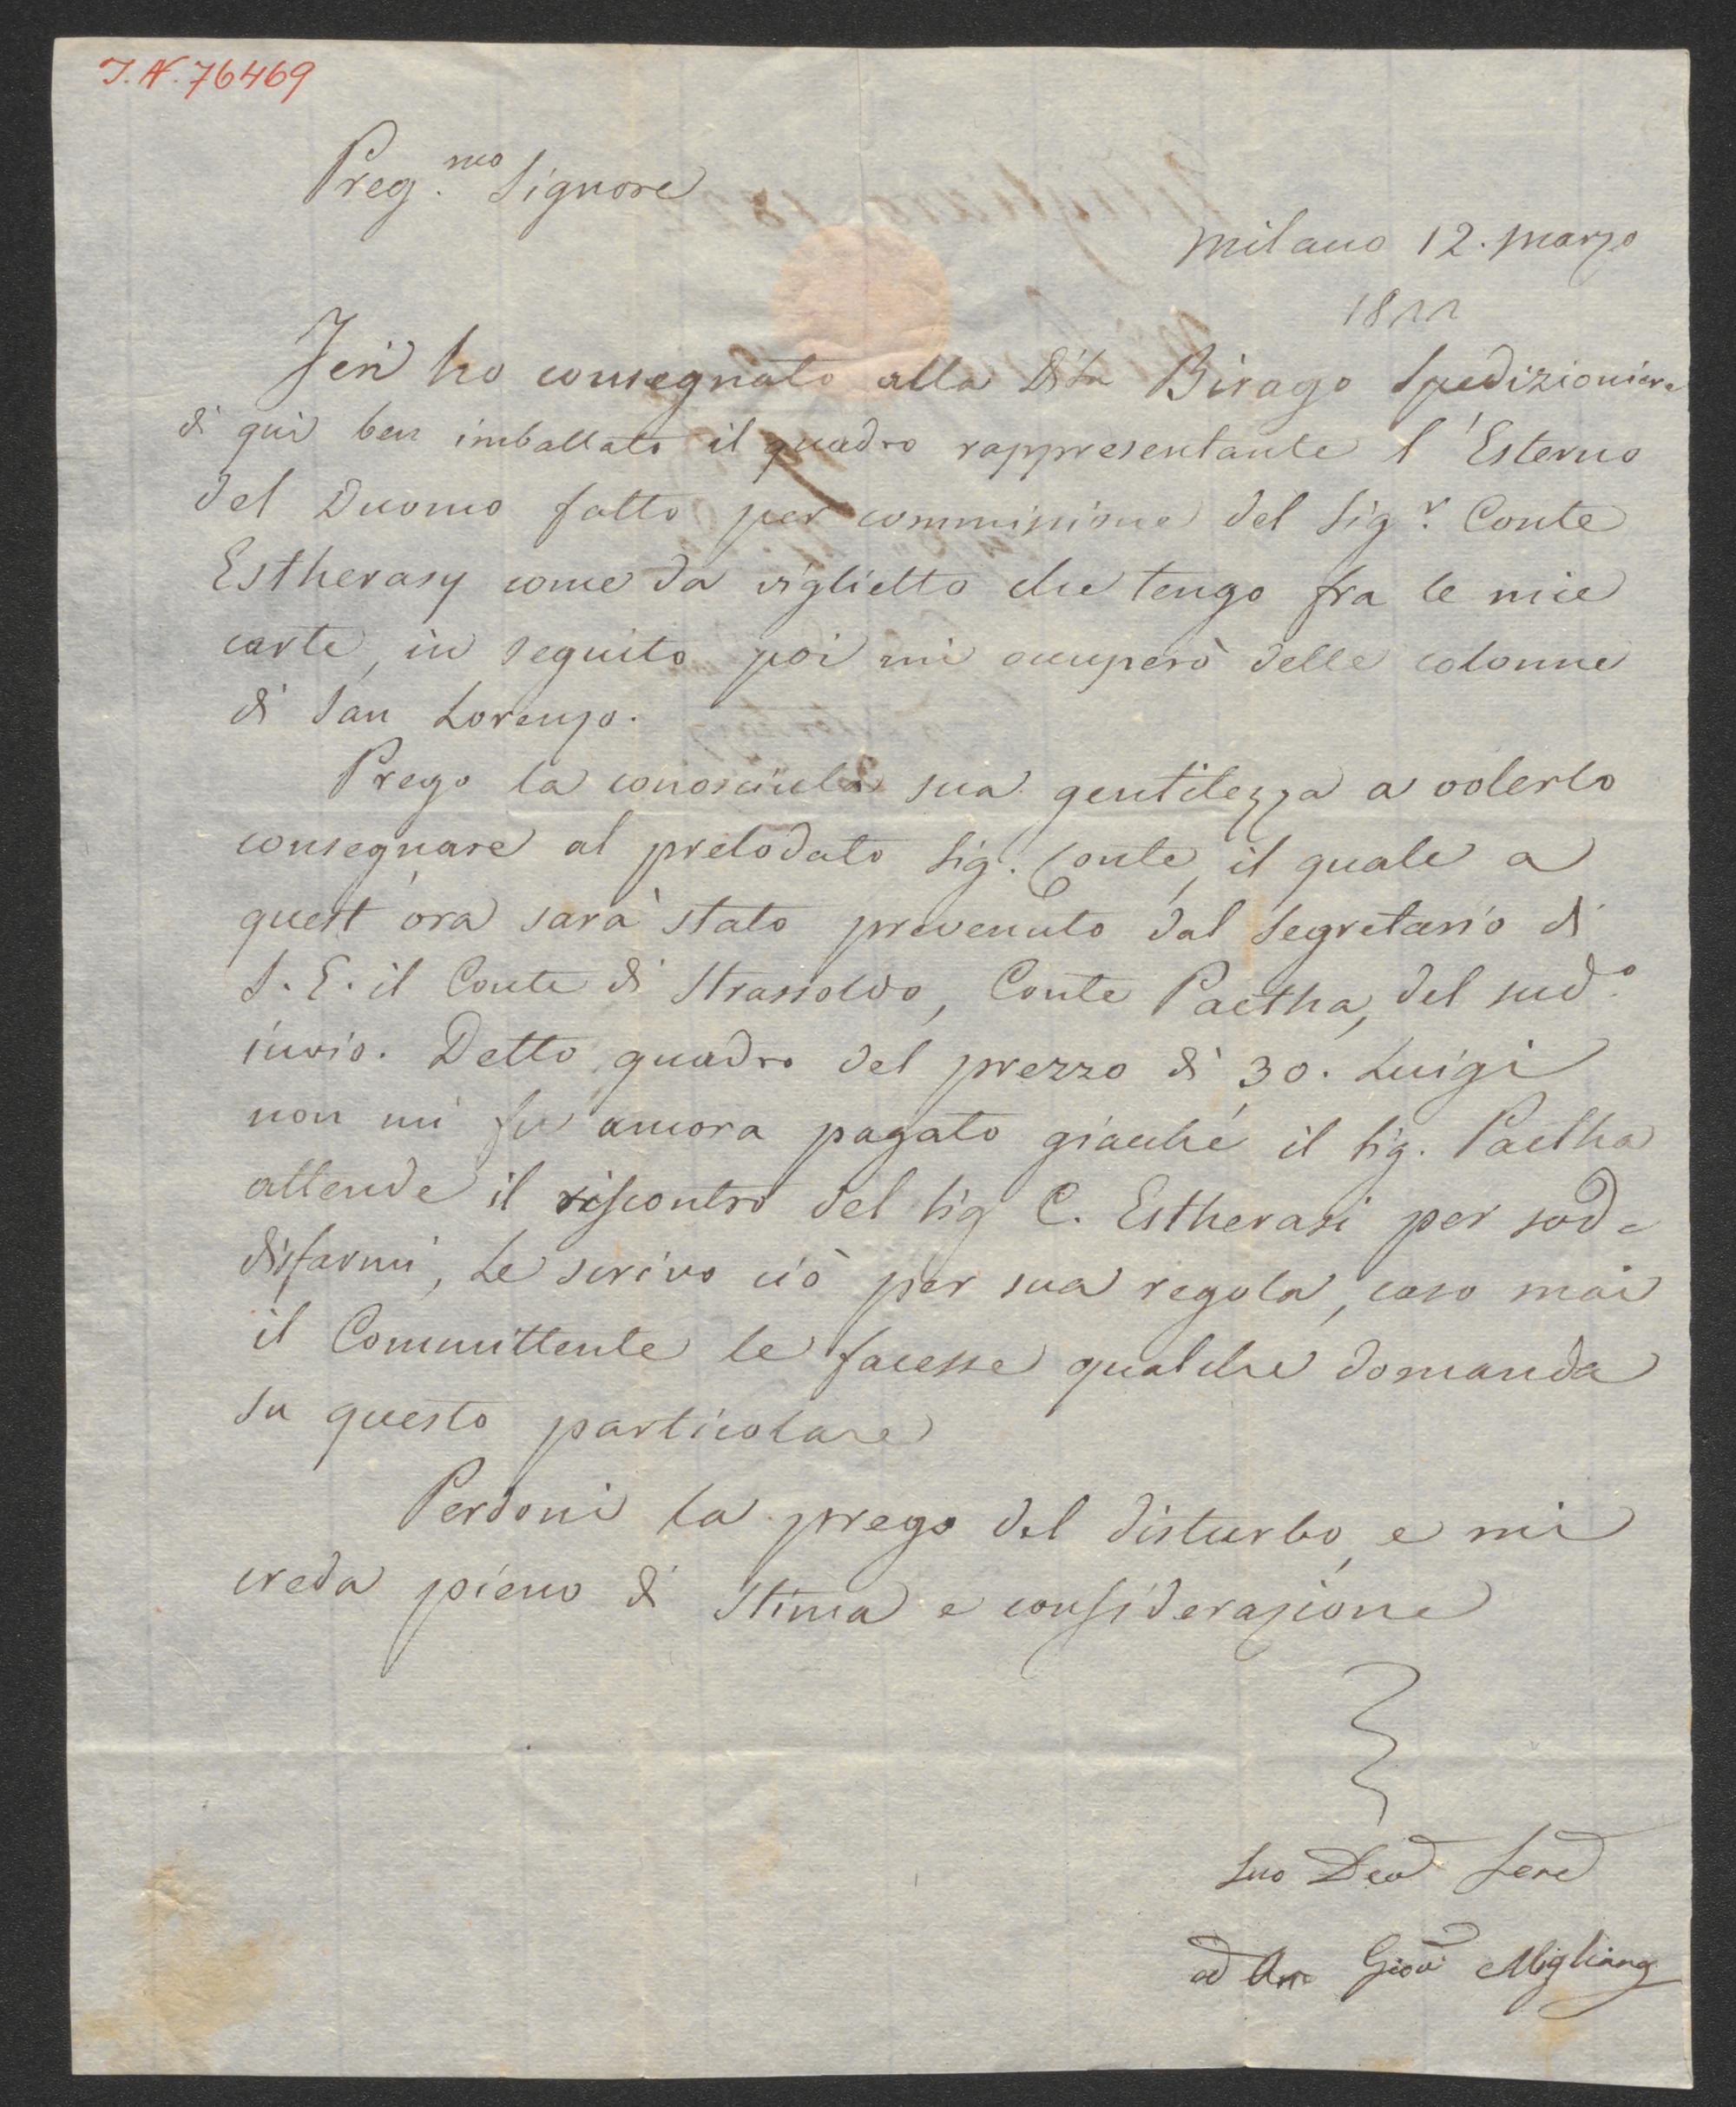 I. N. 76469
Preg.mo Signore
Milano 12. Marzo
1822
Jeri ho consegnato alla Ditta Birago Spedizioniere
di qui ben imballato il quadro rappresentante l'Esterno
del Duomo fatto per commissione del Sig.r Conte
Estherasy come da viglietto che tengo fra le mie
carte, in seguito poi mi occuperò delle colonne
di San Lorenzo.
Prego la conosciuta sua gentilezza a volerlo
consegnare al prelodato Sig. Conte, il quale a
quest'ora sarà stato prevenuto dal Segretario di
S. E. il Conte di Strassoldo, Conte Paetha, del sud.o
invio. Detto quadro del prezzo di 30. Luigi
non mi fu ancora pagato giacché il Sig. Paetha
attende il riscontro del Sig C. Estherasi per sod-
disfarmi, Le scrivo ciò per sua regola, caso mai
il Committente le facesse qualche domanda
su questo particolare
Perdoni la prego del disturbo, e mi
creda pieno di Stima e considerazione
Suo Dev Serv
ed Am Giov Migliara